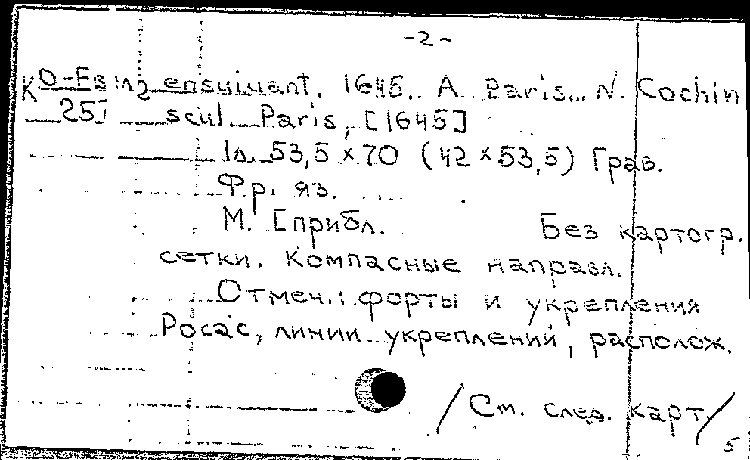 -2-
КО-Ев 1/2 ensuivant, 1645. A Paris.. N. Cochin
251 scul. Paris, [1645]
1л. 53,5 × 70 (42 × 53,5) Грав.
Фр. яз.
М. [прибл. Без картогр.
сетки. Компасные направл.
Отмеч.: форты и укрепления
Росас, линии укреплений, располож.
/См. след. карт/
5